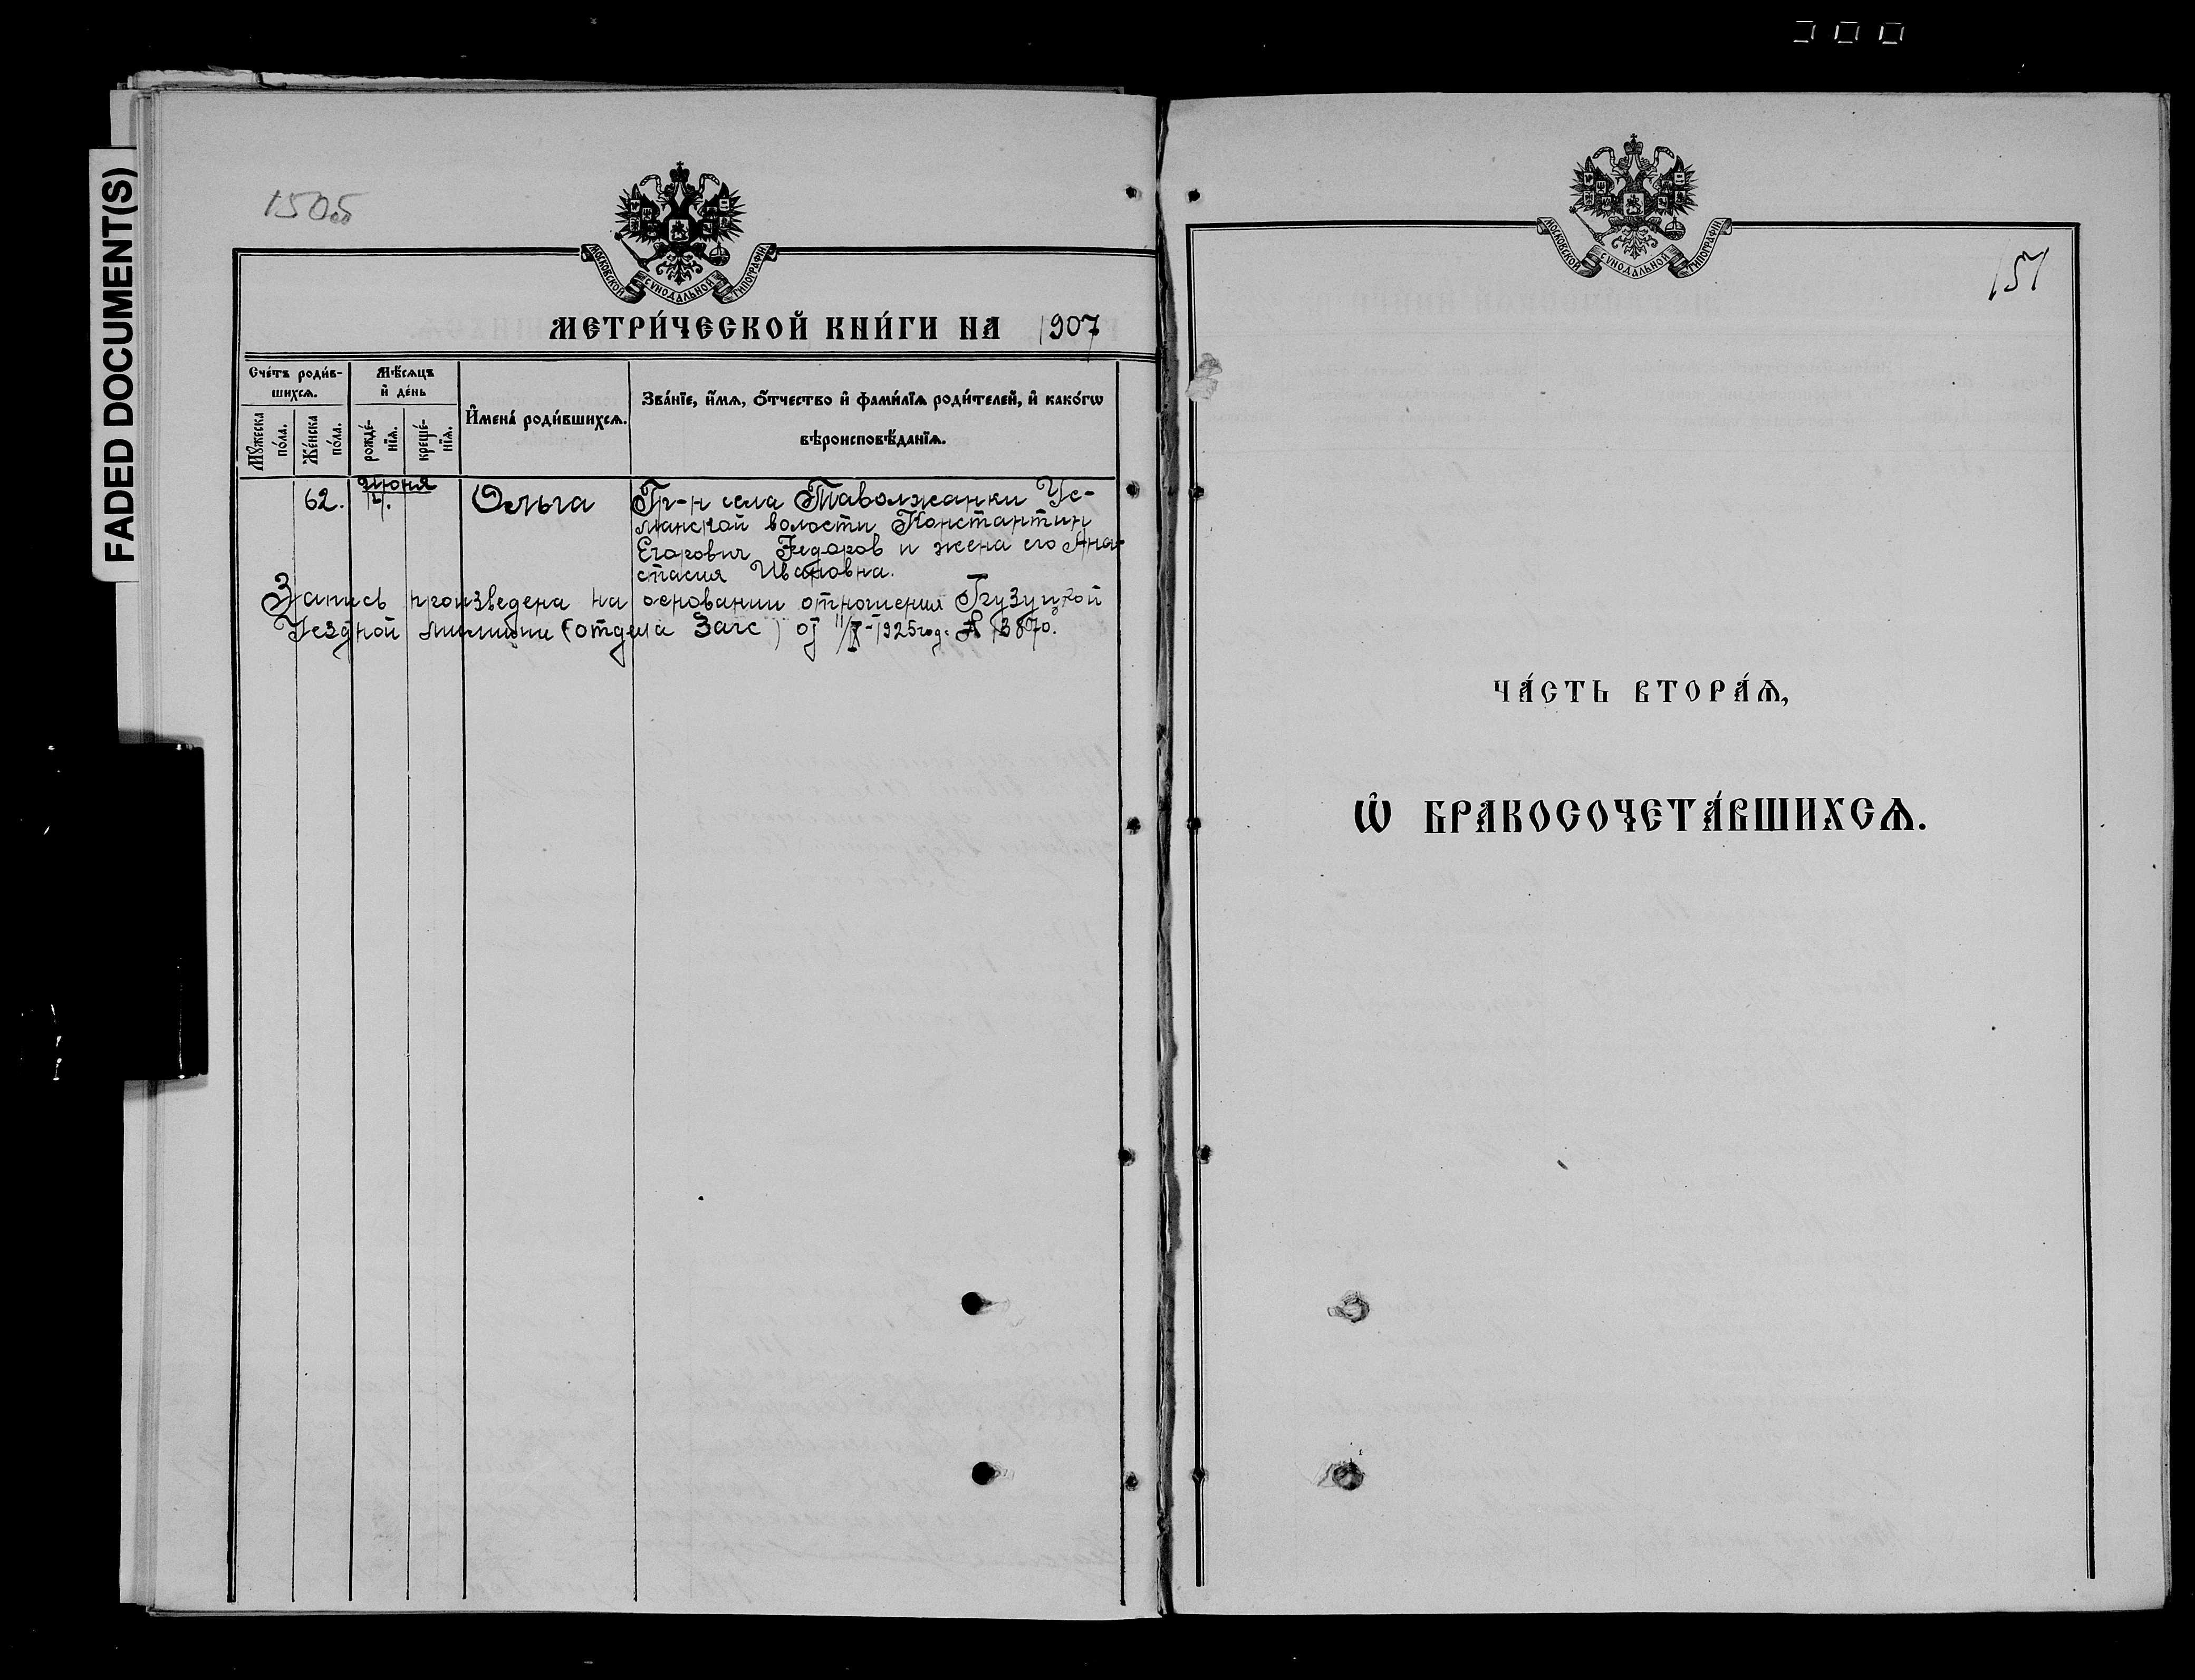 FADED DOCUMENT(S)
150об
МОСКОВСКОЙ СѴНОДАЛЬНОЙ ТИПОГРАФІИ
МЕТРИ́ЧЕСКОЙ КНИ́ГИ НА 1907
Сче́тъ роди́в-
шихсѧ.
Мꙋ́жеска
по́ла.
Же́нска
по́ла.
Мѣ́сѧцъ
и҆ де́нь
рожде́-
нїѧ.
креще́-
нїѧ.
И҆мена̀ роди́вшихсѧ.
Зва́нїе, и҆́мѧ, ѻ҆́тчество и҆ фами́лїѧ роди́телей, и҆ како́гѡ
вѣроисповѣ́данїѧ.
Июня
62.
Ольга
Гр-н села Таволжанки Ус-
манской волости Константин
Егорович Федоров и жена его Ана-
стасия Ивановна.
Запись произведена на основании отношения
Уездной милиции (отдела Загс) от 1925 год. № 13870.
МОСКОВСКОЙ СѴНОДАЛЬНОЙ ТИПОГРАФІИ
151
ЧА́СТЬ ВТОРА́Ѧ,
Ѡ҆ БРАКОСОЧЕТА́ВШИХСѦ.